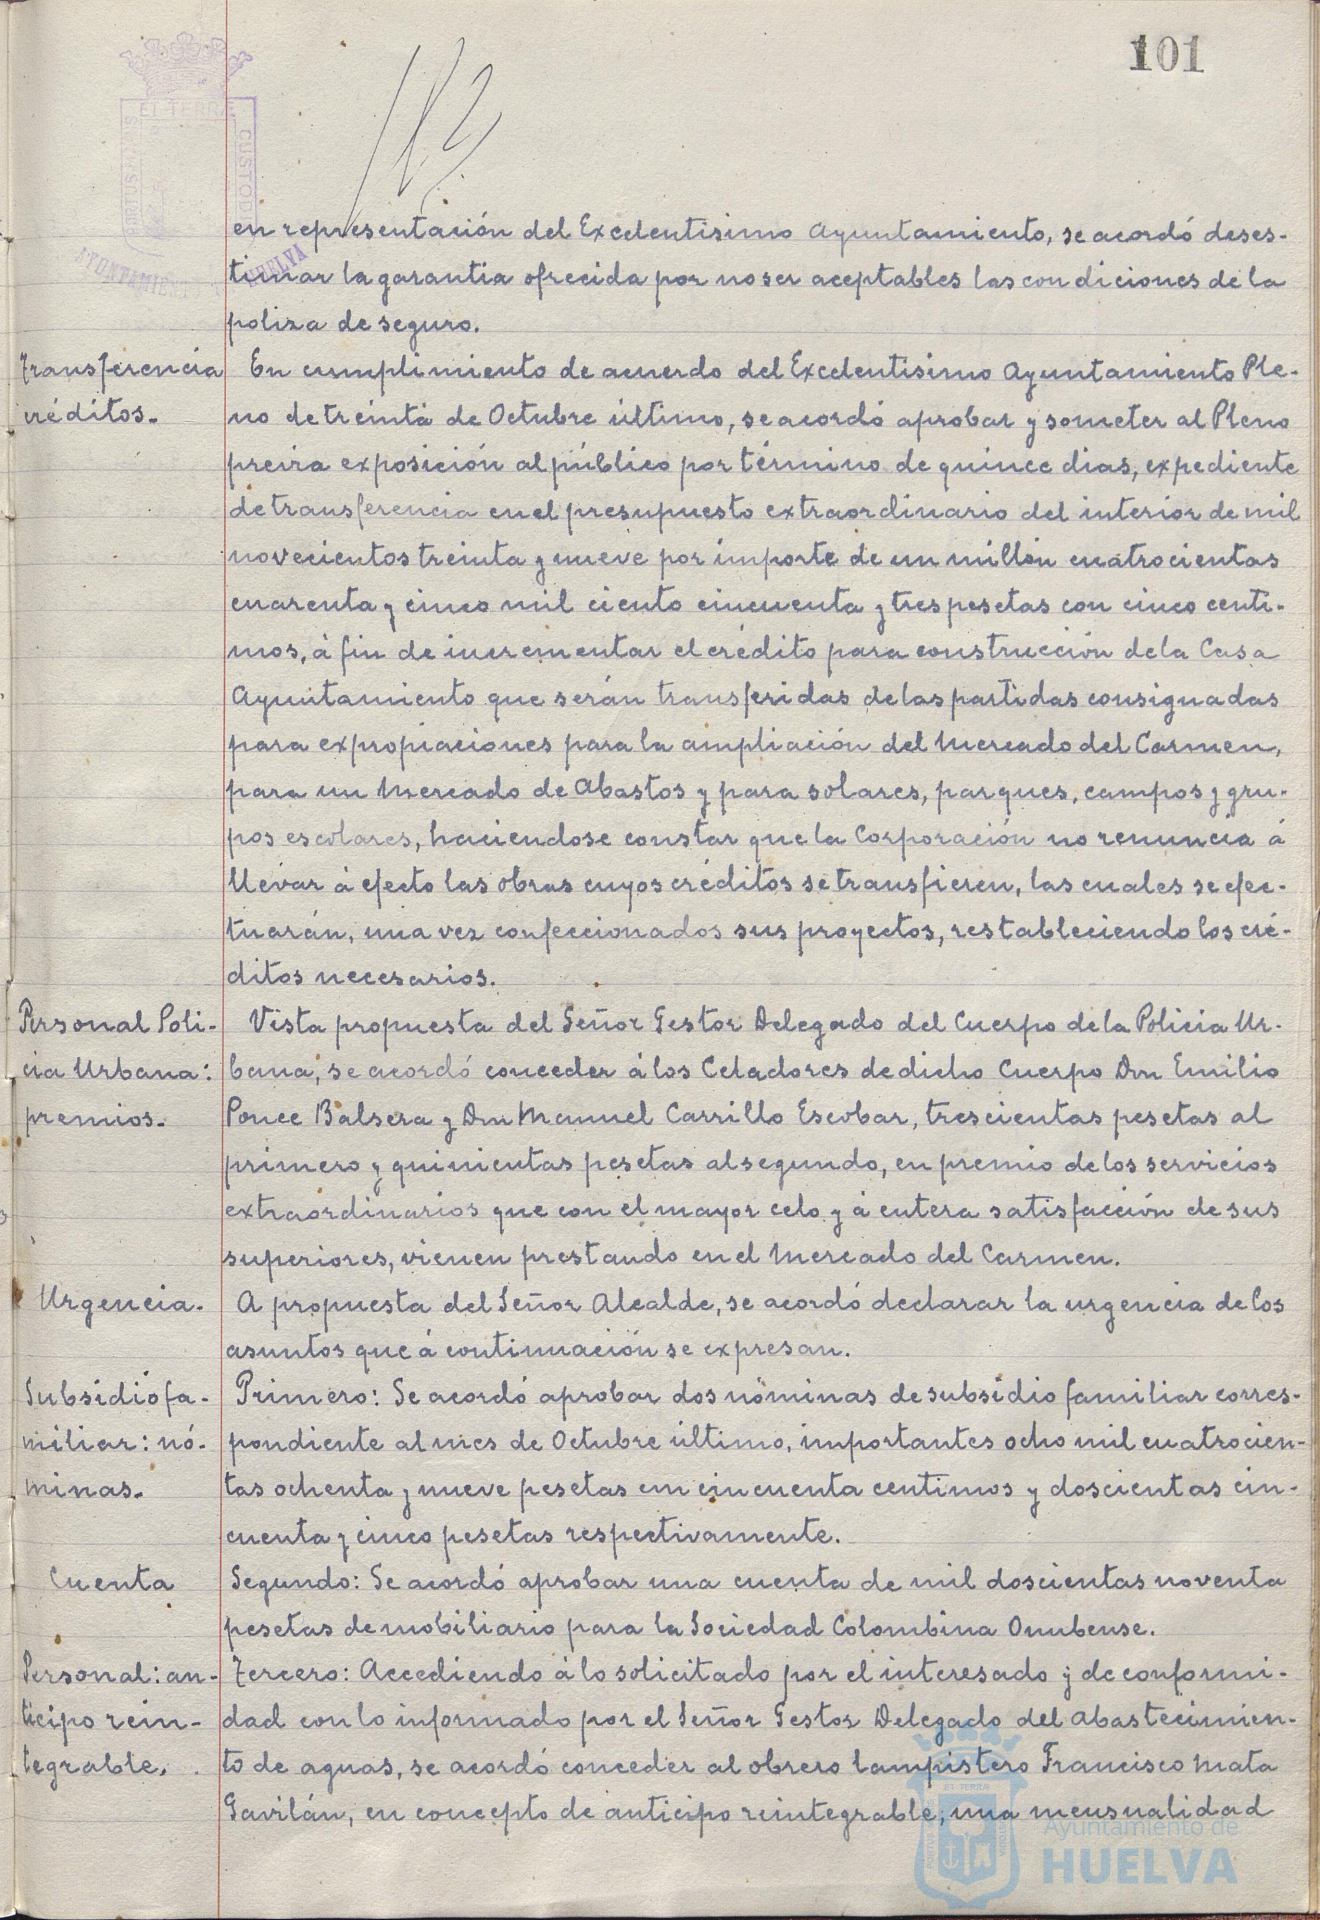 101
EL TERRE
CUSTODIA
AYUNTAMIENTO HUELVA
en representación del Excelentisimo Ayuntamiento, se acordó deses-
timar la garantia ofrecida por no ser aceptables las condiciones de la
poliza de seguro.
Transferencia
créditos.-
En cumplimiento de acuerdo del Excelentisimo Ayuntamiento Ple-
no de treinta de Octubre último, se acordó aprobar y someter al Pleno
previa exposición al público por término de quince dias, expediente
de transferencia en el presupuesto extraordinario del interior de mil
novecientos treinta y nueve por importe de un millón cuatrocientas
cuarenta y cinco mil ciento cincuenta y tres pesetas con cinco centi-
mos, á fin de incrementar el crédito para construcción de la Casa
Ayuntamiento que serán transferidas de las partidas consignadas
para expropiaciones para la ampliación del Mercado del Carmen,
para un Mercado de Abastos y para solares, parques, campos y gru-
pos escolares, haciendose constar que la Corporación no renuncia á
llevar á efecto las obras cuyos créditos se transfieren, las cuales se efec-
tuarán, una vez confeccionados sus proyectos, restableciendo los cré-
ditos necesarios.
Personal Poli-
cia Urbana:
premios.-
Vista propuesta del Señor Gestor Delegado del Cuerpo de la Policia Ur-
bana, se acordó conceder á los Celadores de dicho Cuerpo Don Emilio
Ponce Balsera y Don Manuel Carrillo Escobar, trescientas pesetas al
primero y quinientas pesetas al segundo, en premio de los servicios
extraordinarios que con el mayor celo y á entera satisfacción de sus
superiores, vienen prestando en el Mercado del Carmen.
Urgencia.-
A propuesta del Señor Alcalde, se acordó declarar la urgencia de los
asuntos que á continuación se expresan.
Subsidio fa-
miliar: nó-
minas.-
Primero: Se acordó aprobar dos nóminas de subsidio familiar corres-
pondiente al mes de Octubre último, importantes ocho mil cuatrocien-
tas ochenta y nueve pesetas con cincuenta centimos y doscientas cin-
cuenta y cinco pesetas respectivamente.
Cuenta
Segundo: Se acordó aprobar una cuenta de mil doscientas noventa
pesetas de mobiliario para la Sociedad Colombina Onubense.
Personal: an-
ticipo rein-
tegrable.
Tercero: Accediendo á lo solicitado por el interesado y de conformi-
dad con lo informado por el Señor Gestor Delegado del Abastecimien-
to de aguas, se acordó conceder al obrero lampistero Francisco Mata
Gavilán, en concepto de anticipo reintegrable, una mensualidad
Ayuntamiento de
HUELVA